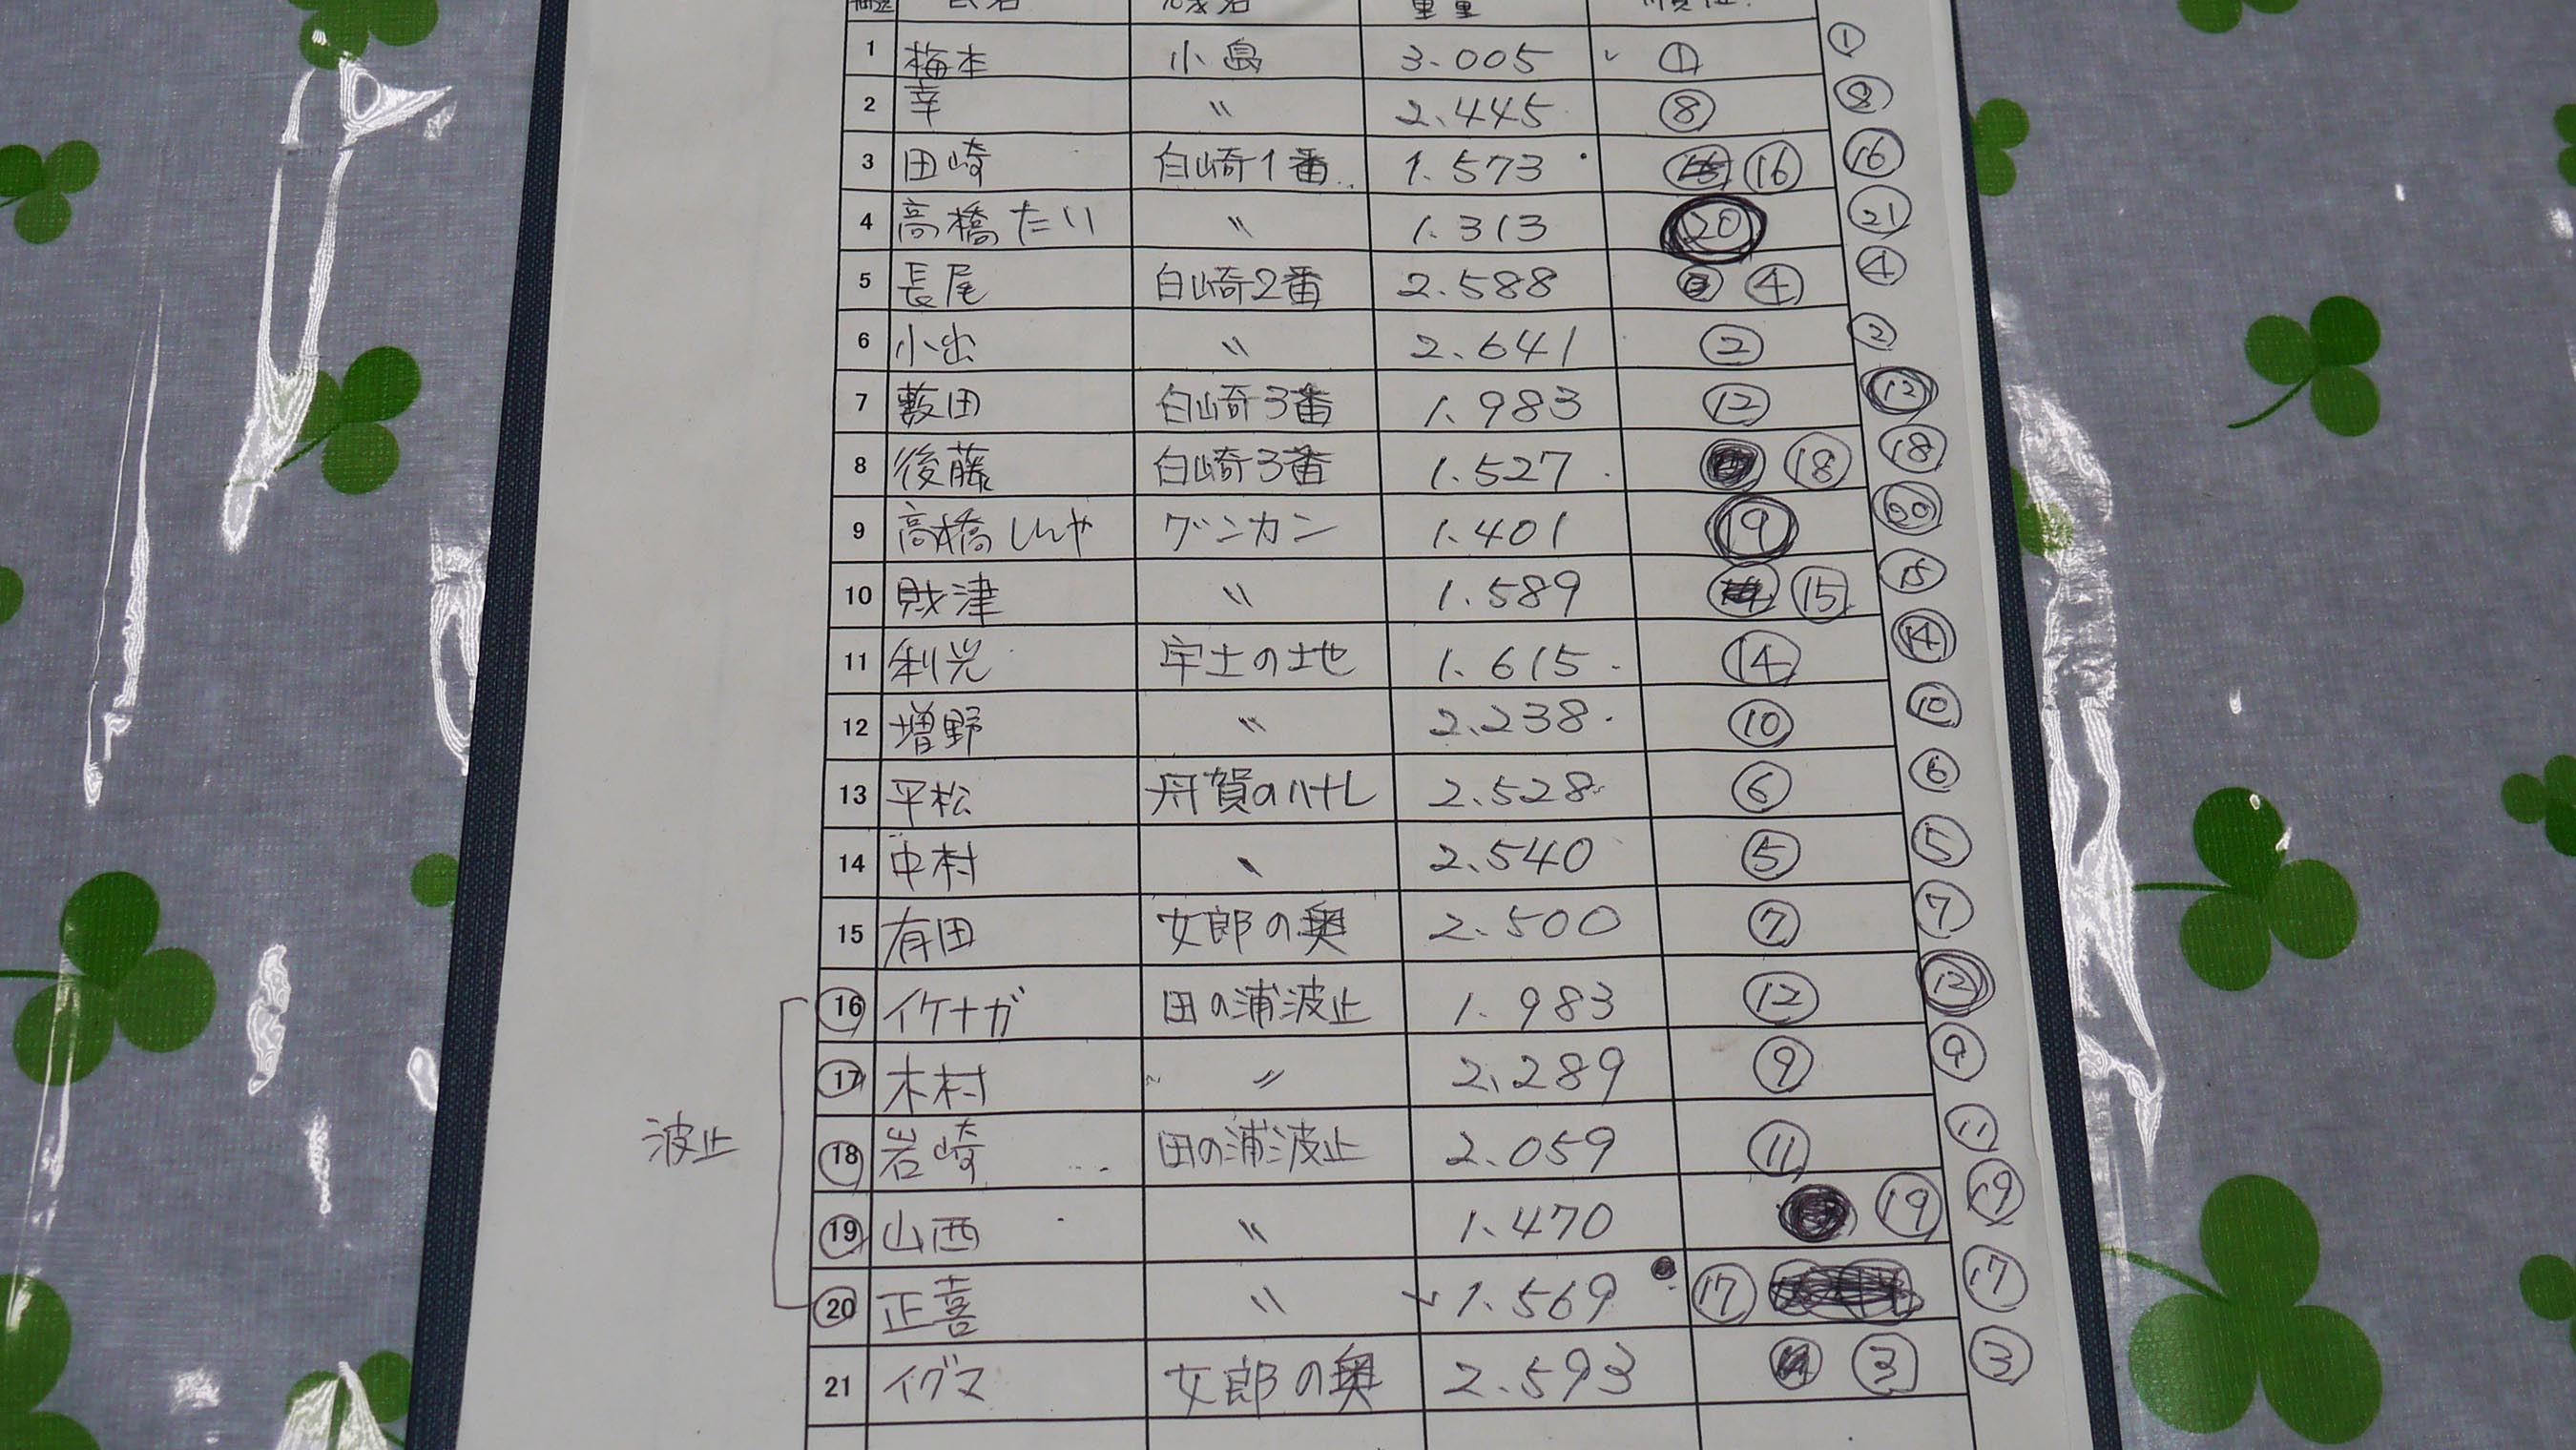 氏名 磯名 重量 順位
1 梅本 小島 3.005 ① ①
2 幸 〃 2.445 ⑧ ⑧
3 田崎 白崎1番 1.573 ⑯ ⑯
4 高橋たい 〃 1.313 ⑳ ㉑
5 長尾 白崎2番 2.588 ④ ④
6 小出 〃 2.641 ② ②
7 薮田 白崎3番 1.983 ⑫ ⑫
8 後藤 白崎3番 1.527 ⑱ ⑱
9 高橋しんや グンカン 1.401 ⑲ ⑳
10 財津 〃 1.589 ⑮ ⑮
11 利光 宇土の地 1.615 ⑭ ⑭
12 増野 〃 2.238 ⑩ ⑩
13 平松 丹賀のハナレ 2.528 ⑥ ⑥
14 中村 〃 2.540 ⑤ ⑤
15 有田 女郎の奥 2.500 ⑦ ⑦
⑯ イケナガ 田の浦波止 1.983 ⑫ ⑫
⑰ 木村 〃 2.289 ⑨ ⑨
波止
⑱ 岩崎 田の浦波止 2.059 ⑪ ⑪
⑲ 山西 〃 1.470 ⑲ ⑲
⑳ 正喜 〃 1.569 ⑰ ⑰
21 イグマ 女郎の奥 2.593 ③ ③